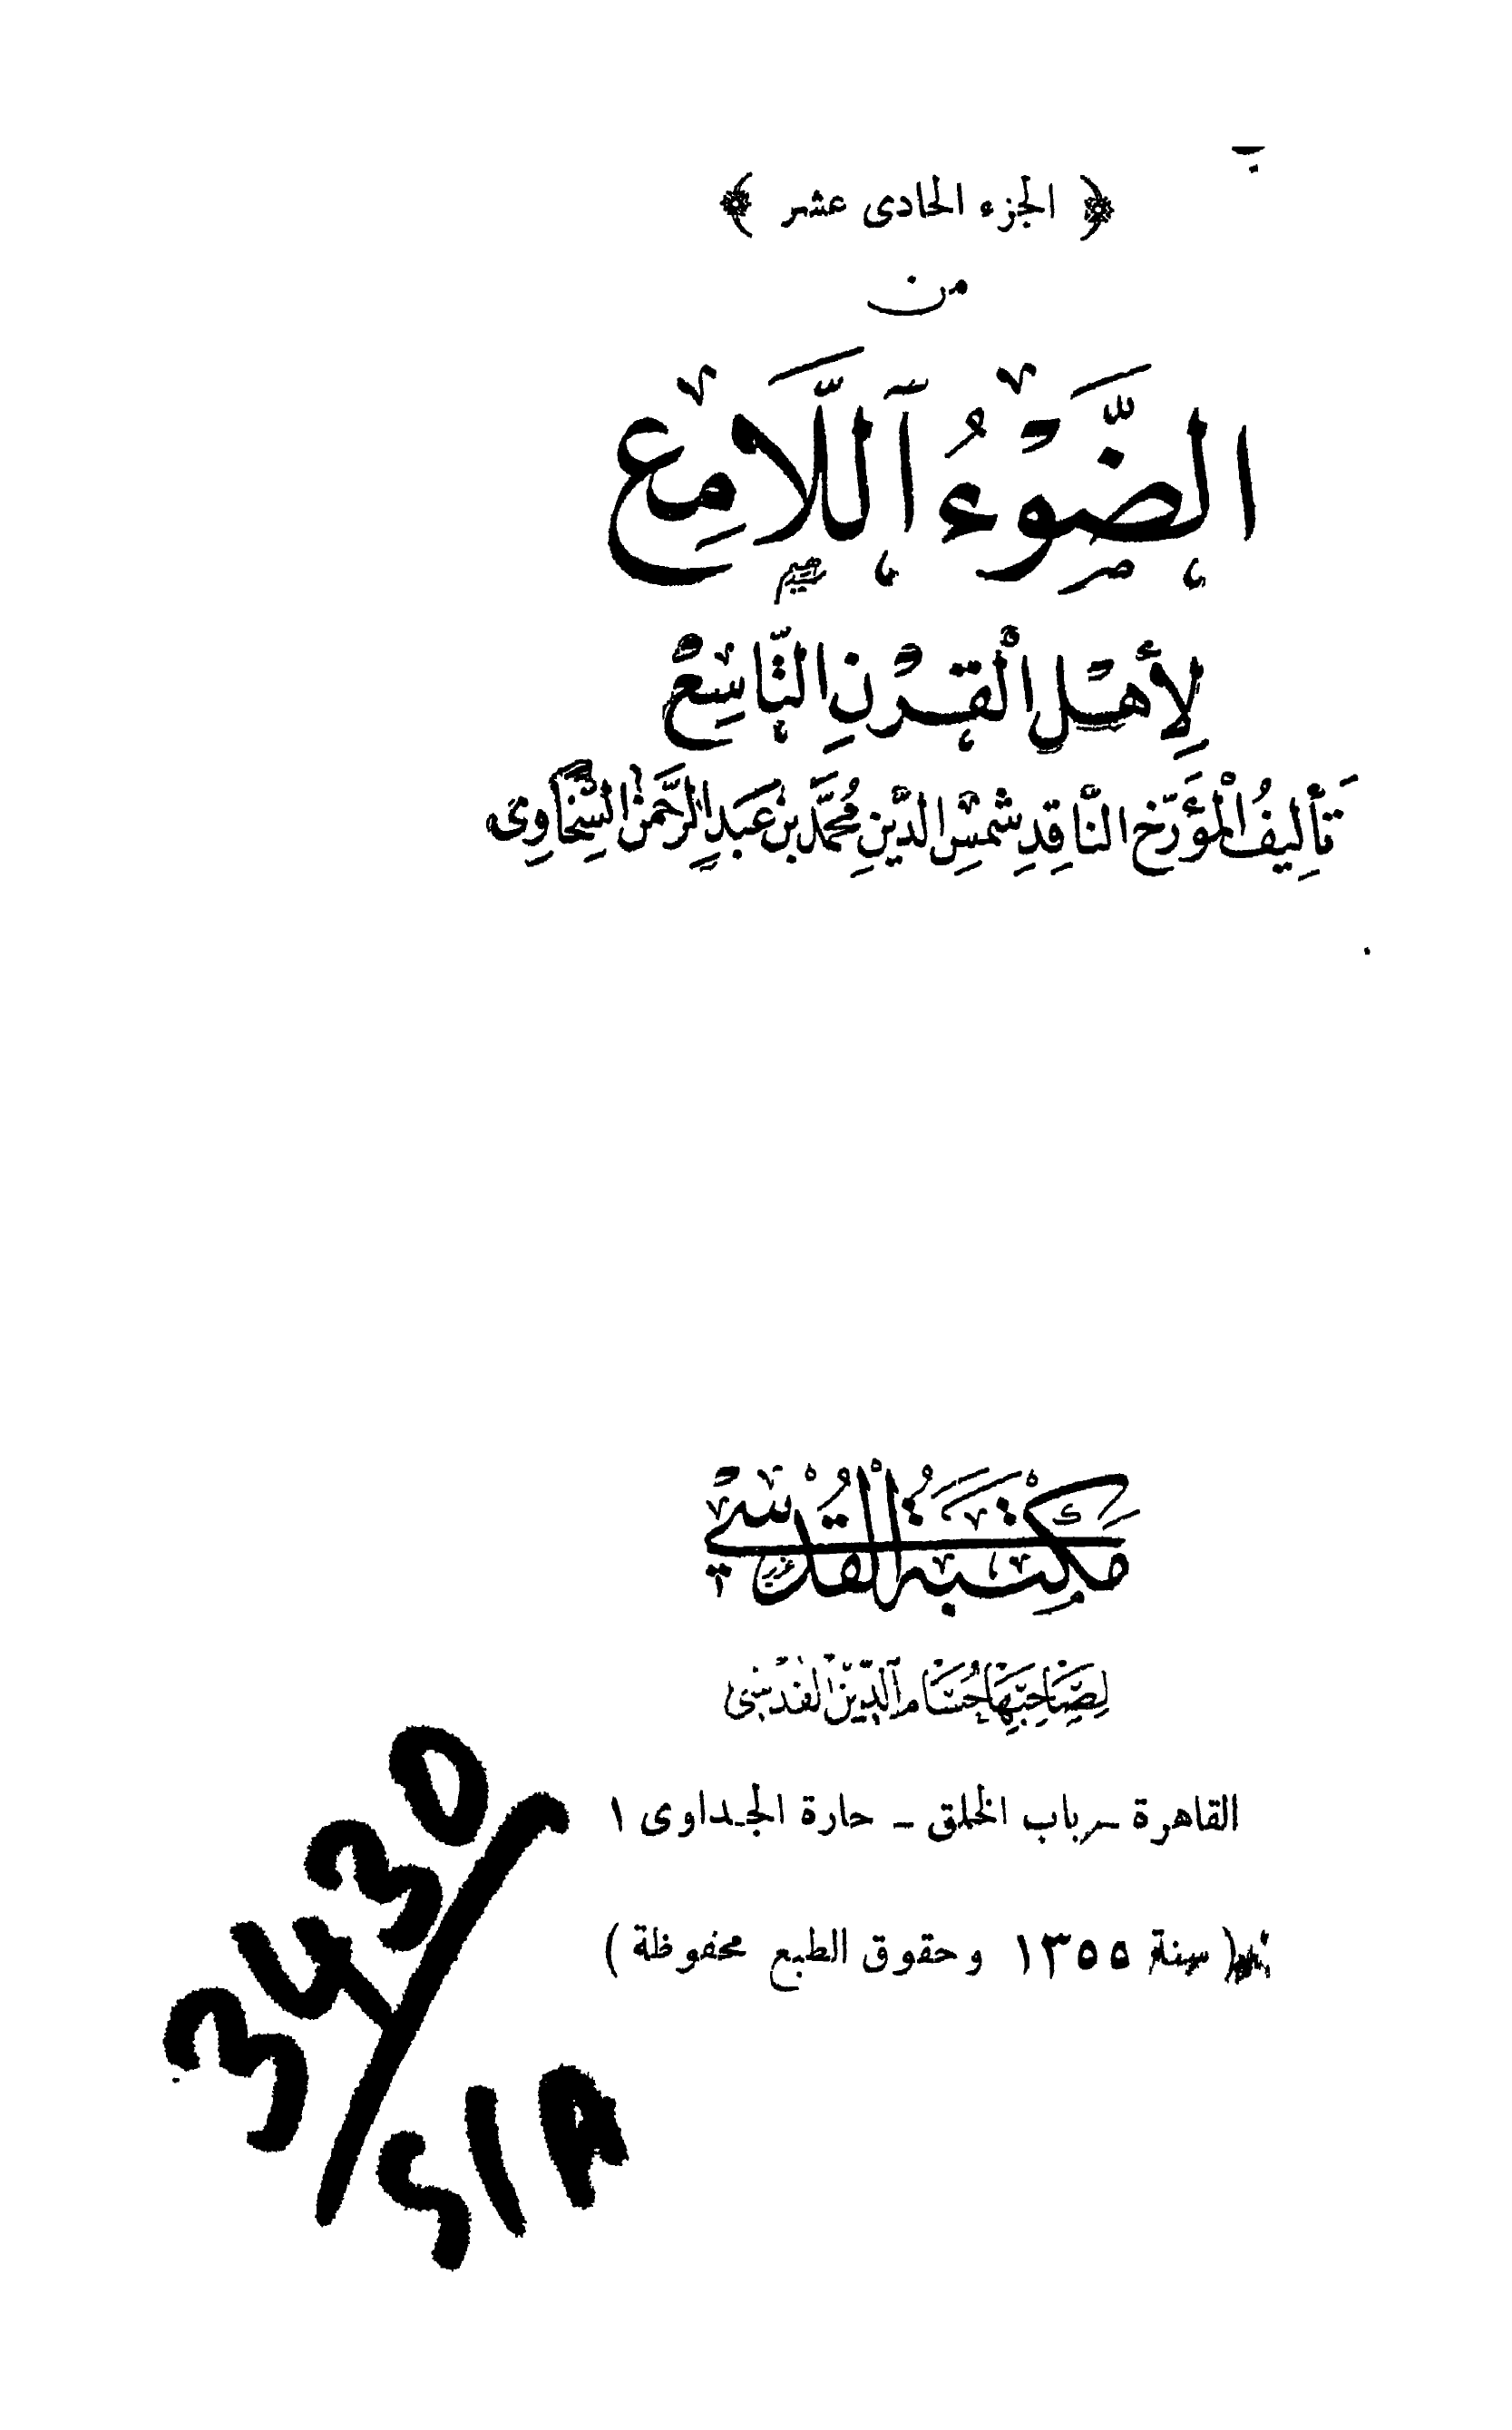 ﴿ الجزء الحادى عشر ﴾
من
الضَّوْءُ اَللَّامِع
لِأَهْلِ الْقَرْنِ التَّاسِعْ
تَأْلِيفُ الْمُؤَرّخ النَّاقِدِ شَمْسِ الدِّينِ مُحَمَّد بن عَبدِ الرَّحْمٰن السَّخَاوِى
مَكْتَبَةُ الْقُدْسِي
لِصَاحِبِهَا حُسَام اَلدِّين الْقُدْسِى
القاهرة - باب الخلق - حارة الجداوى ١
( سنة ١٣٥٥ وحقوق الطبع محفوظة )
3430/
S/A